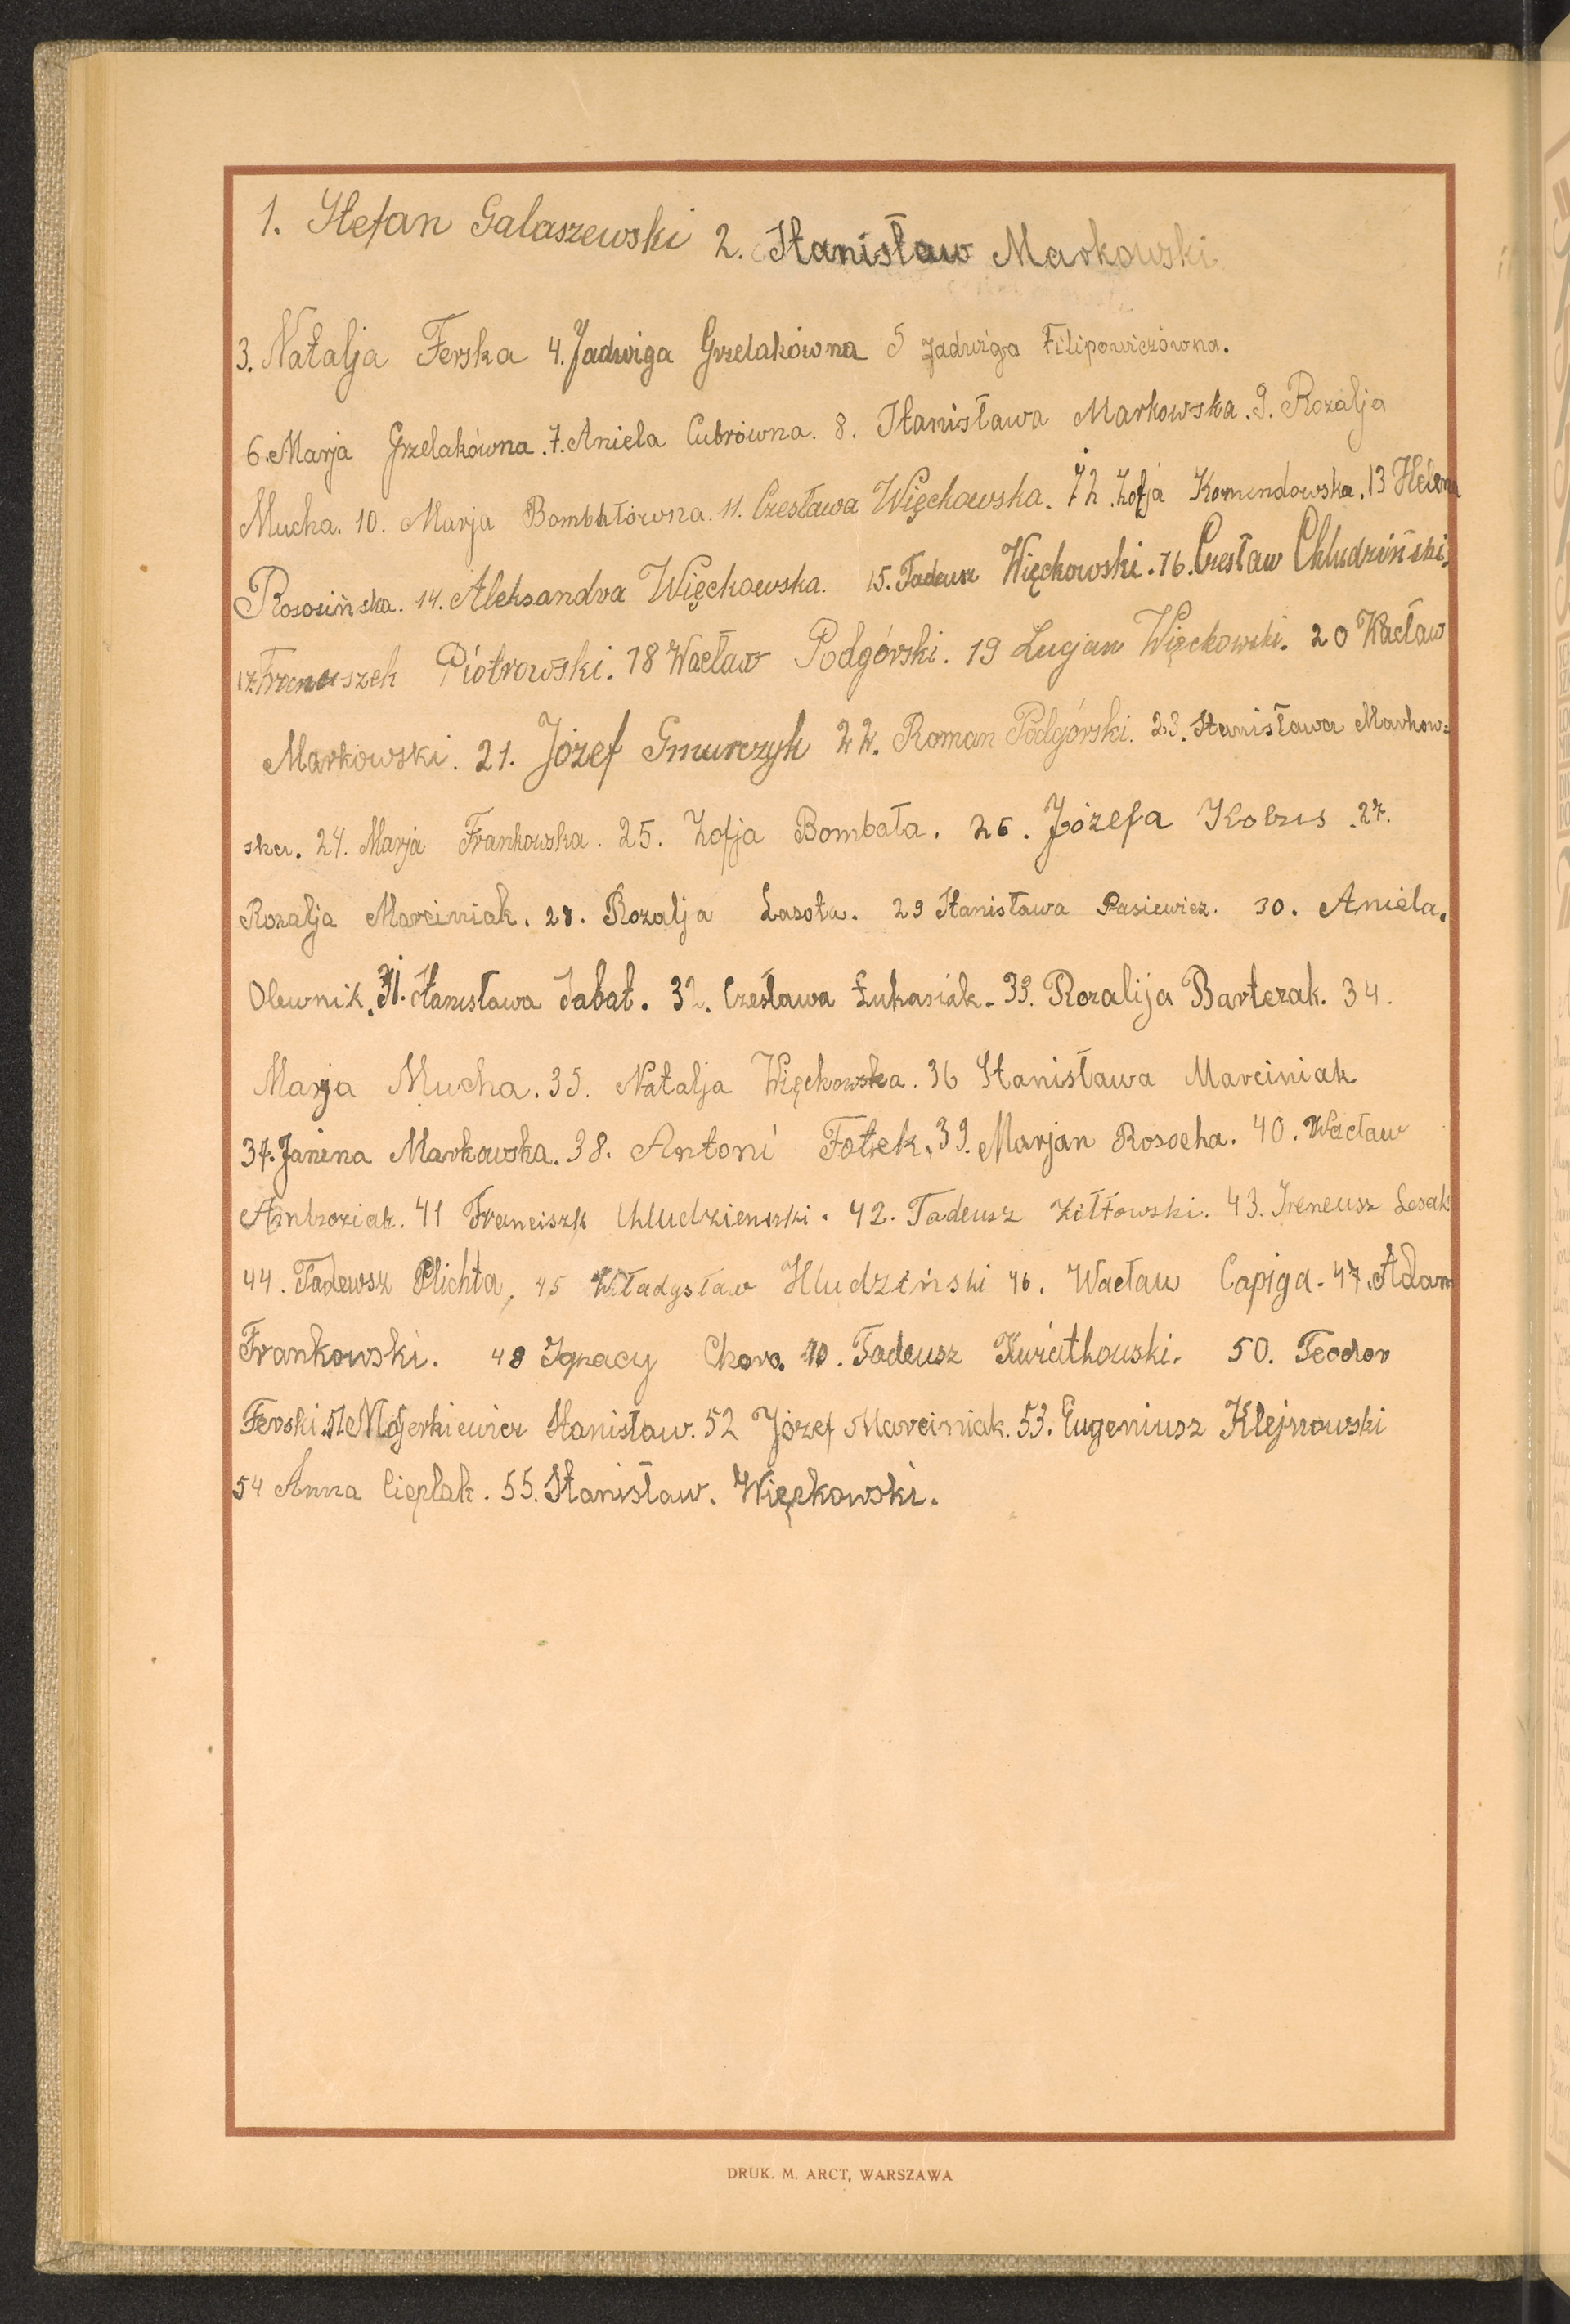 1. Stefan Galaszewski 2. Stanisław Markowski
3. Natalja Ferska 4. Jadwiga Grzelakówna 5 Jadwiga Filipowiczówna.
6. Marja Grzelakówna. 7. Aniela Cubrówna. 8. Stanisława Markowska. 9. Rozalja
Mucha. 10. Marja Bombałówna. 11. Czesława Więckowska. 12. Zofja Komendowska. 13 Helena
Rososińska. 14. Aleksandra Więckowska. 15. Tadeusz Więckowski. 16. Czesław Chludziński,
17. Franuszek Piotrowski. 18 Wacław Podgórski. 19 Lucjan Więckowski. 20 Wacław
Markowski. 21. Józef Gmurczyk 22. Roman Podgórski. 23. Stanisława Markow=
ska. 24. Marja Frankowska. 25. Zofja Bombała. 26. Józefa Kobus. 27.
Rozalja Marciniak. 28. Rozalja Lasota. 29 Stanisława Pasiewicz. 30. Aniela.
Olewnik. 31. Stanisława Sabat. 32. Czesława Łukasiak. 33. Rozalija Barterak. 34.
Marja Mucha. 35. Natalja Więckowska. 36 Stanisława Marciniak
37. Janina Markowska. 38. Antoni Fotek. 39. Marjan Rosocha. 40. Wacław
Ambroziak. 41 Franciszk Chludzienski. 42. Tadeusz Żółtowski. 43. Ireneusz Lesak
44. Tadeusz Plichta, 45 Władysław Hludziński 46. Wacław Capiga. 47. Adam
Frankowski. 48 Ignacy Chora. 49. Tadeusz Kwiatkowski. 50. Teodor
Ferski. 51. Majerkiewicz Stanisław. 52 Józef Marciniak. 53. Eugeniusz Klejnowski
54 Anna Cieplak. 55. Stanisław. Więckowski.
DRUK. M. ARCT, WARSZAWA